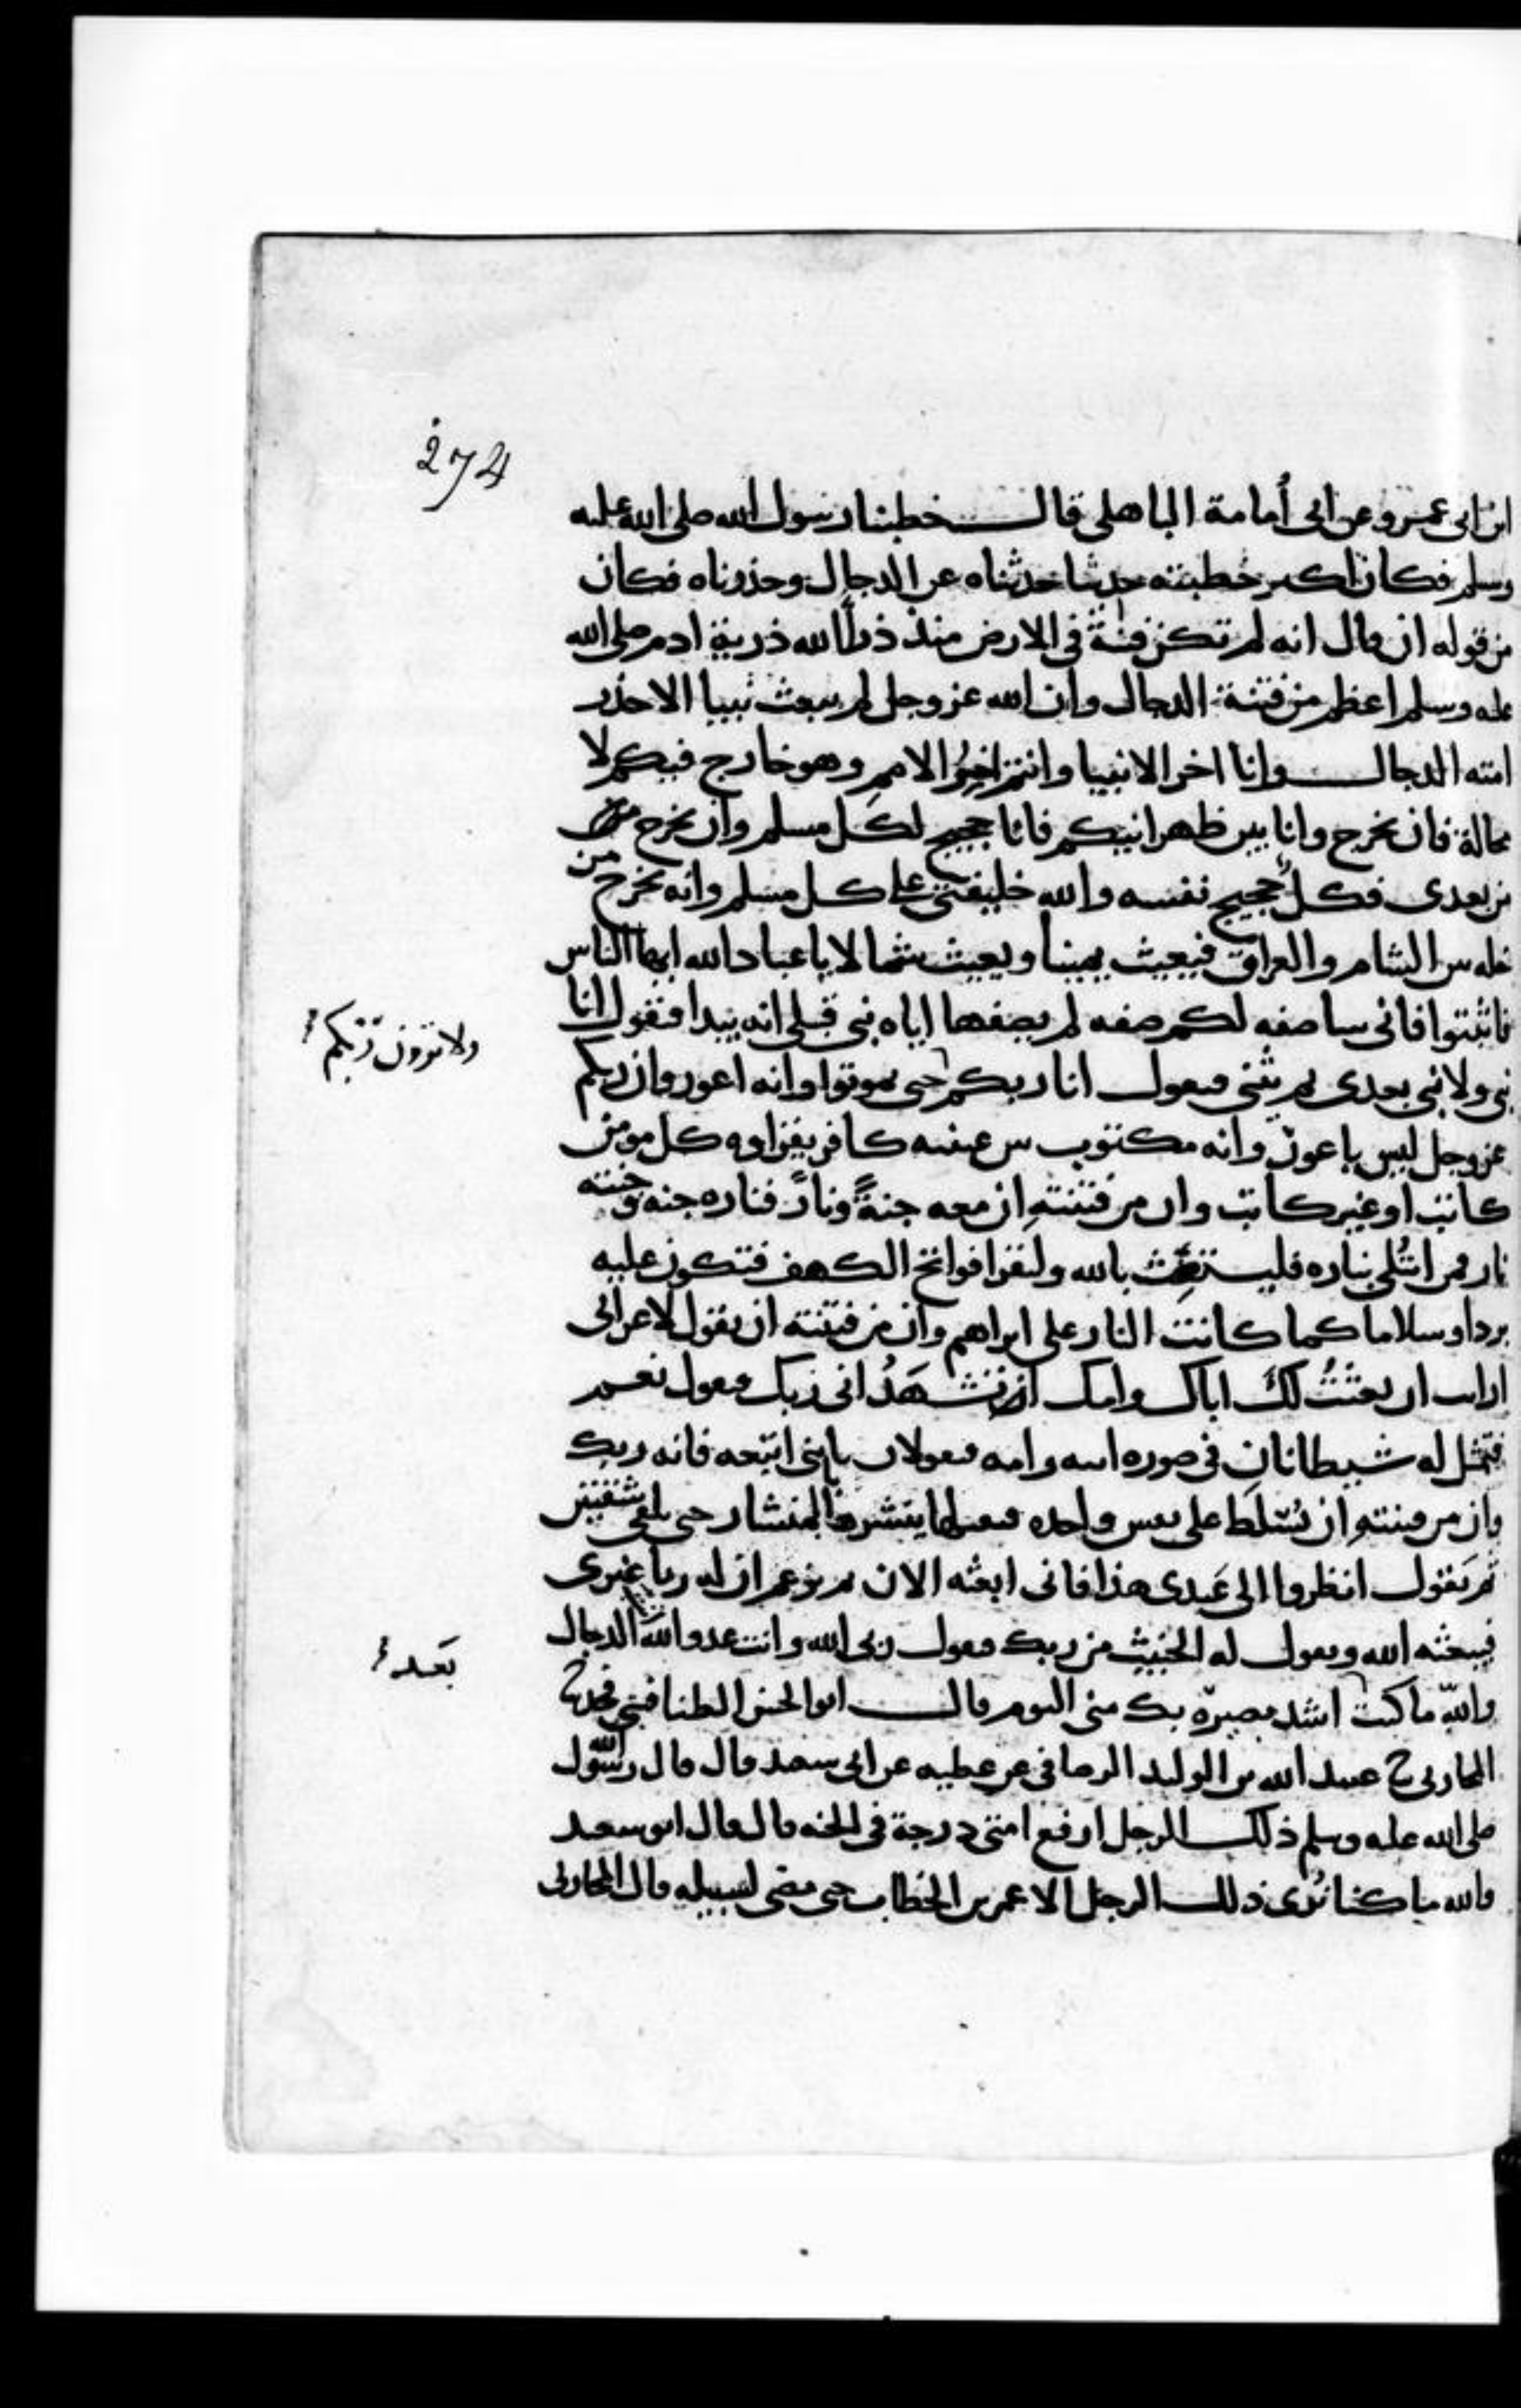 274
ابن ابى عمرو عن ابى أمامة الباهلى قال خطبنا رسول الله صلى الله عليه
وسلم فكان اكبر خطبته حديثا حدثناه عن الدجال وحذرناه فكان
من قوله ان قال انه لم تكن فتنة فى الارض منذ ذرأ الله ذرية ادم صلى الله
عليه وسلم اعظم من فتنة الدجال وان الله عز وجل لم يبعث نبيا الا حذر
امته الدجال وانا اخر الانبيا وانتم اخِرُ الامم وهو خارج فيكم لا
محالة فان يخرج وانا بين ظهرانيكم فانا حجيج لكل مسلم وان يخرج
من بعدى فكل حجيج نفسه والله خليفتى على كل مسلم وانه يخرج من
خله بين الشام والعراق فيعيث يمينا ويعيث شمالا يا عباد الله ايها الناس
فاثبتوا فانى ساصفه لكم صفه لم يصفها اياه نبى قبلى انه يبدا فيقول انا
نبى ولا نبى بعدى ثم يثنى فيقول انا ربكم حتى تموتوا وانه اعور وان ربكم
ولا ترون ربكم
عز وجل ليس باعور وانه مكتوب بين عينيه كافر يقراوه كل مومن
كاتب او غير كاتب وان من فتنتهِ ان معه جنةً ونارً فناره جنه وجنته
نار فمن ابتُلى بناره فليستغِث بالله وليقرا فواتح الكهف فتكون عليه
بردا وسلاما كما كانت النار على ابراهيم وان من فتنته ان يقول لاعرابى
ارايت ان بعثتُ لكَ اباك وامك اتشهَدُ انى ربك فيقول نعم
فيتمثل له شيطانانِ فى صوره ابيه وامه فيقولان يا بنى اتبعه فانه ربك
وان من فتنتهِ ان يُسلط على نفس واحده فيقتلها ينشرها بالمنشار حتى يلقى شقتين
ثم يَقول انظروا الى عَبدى هذا فانى ابعثه الان ثم يزعم ان له ربا غيرى
فيبعثه الله ويقول له الخبيث من ربك فيقول ربى الله وانت عدو الله الدجال
والله ما كنت اشد بصيرة بك منى اليوم قال ابو الحسن الطنافسى فحدثنا
بَعد
المحاربى ح عبيد الله بن الوليد الوصافى عن عطيه عن ابى سعيد قال قال رسول الله
صلى الله عليه وسلم ذلك الرجل ارفع امتى درجة فى الجنه قال قال ابو سعيد
والله ما كنا نُرى ذلك الرجل الا عمر بن الخطاب حتى مضى لسبيله قال المحاربى